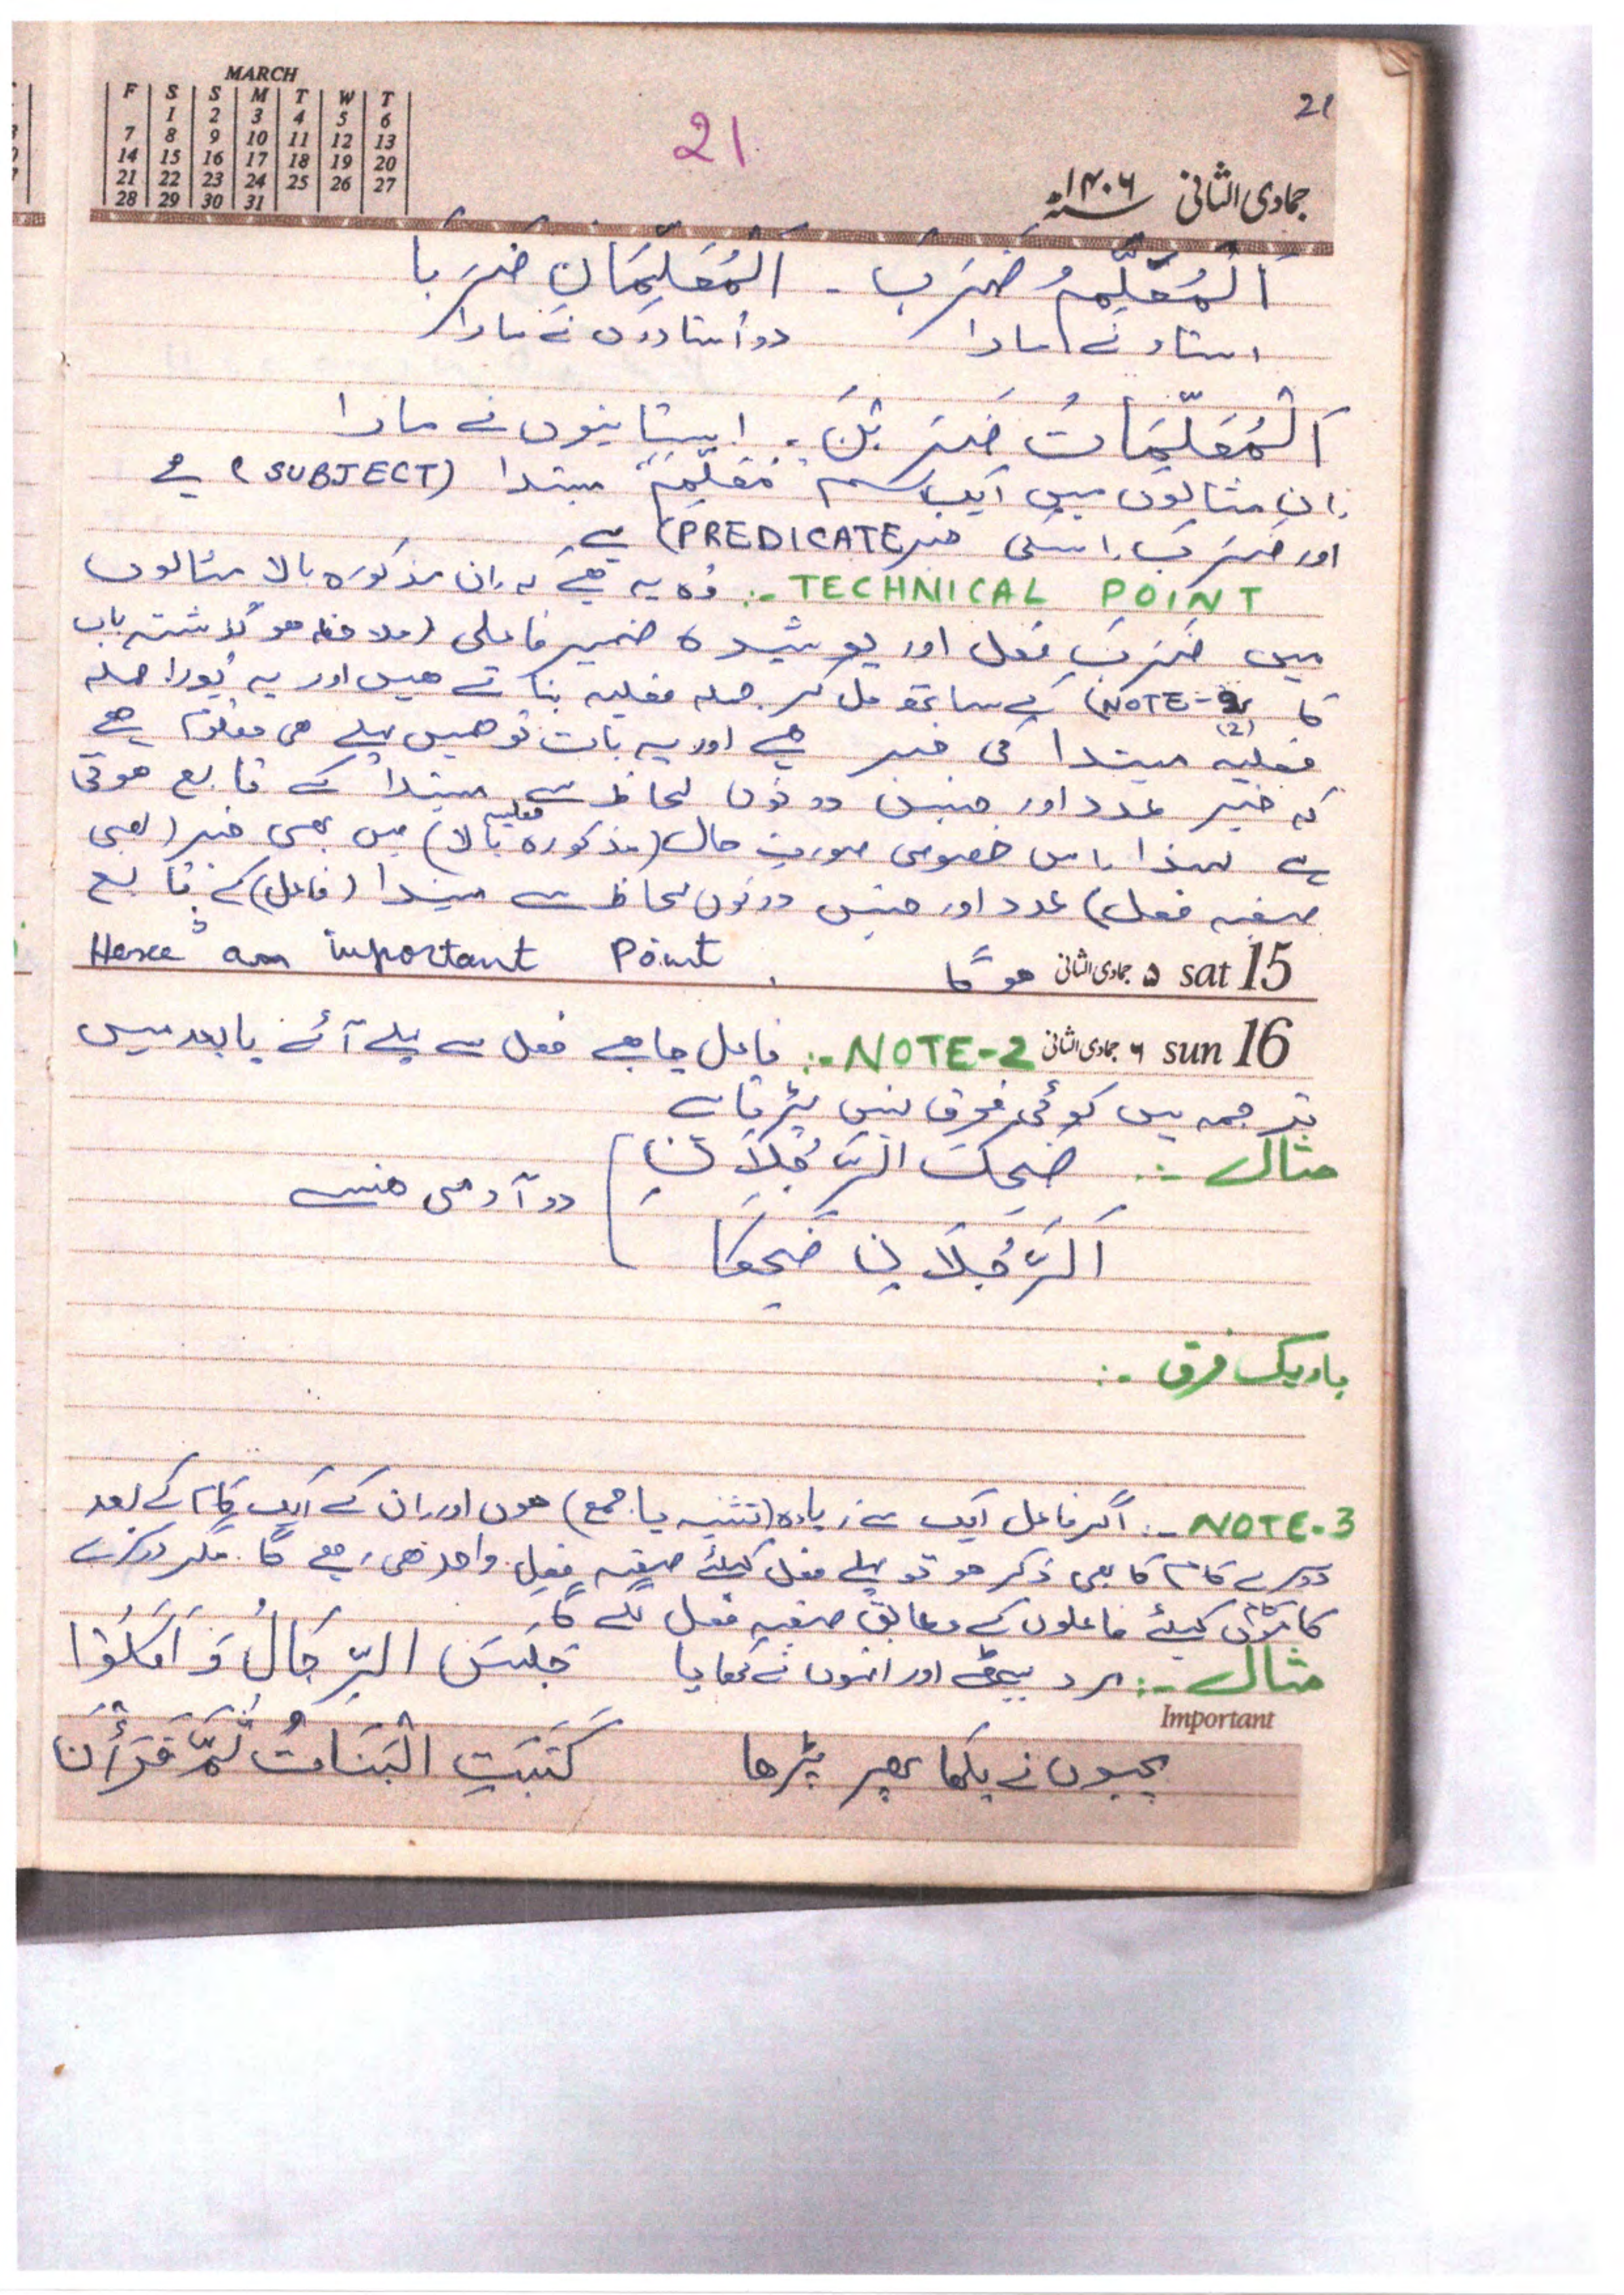 MARCH
F S S M T W T
1 2 3 4 5 6
7 8 9 10 11 12 13
14 15 16 17 18 19 20
21 22 23 24 25 26 27
28 29 30 31
21
21
جمادی الثانی ۱۴۰۶ھ
اَلْمُعَلِّمُ ضَرَبَ - اَلْمُعَلِّمَانِ ضَرَبَا
استاد نے مارا دو استادوں نے مارا
اَلْمُعَلِّمَاتُ ضَرَبْنَ . استانیوں نے مارا
ان مثالوں میں ایک اسم مُعَلِّمٌ مبتدا (SUBJECT) ہے
اور ضَرَبَ اسکی خبر (PREDICATE) ہے
TECHNICAL POINT :- وہ یہ ہے کہ ان مذکورہ بالا مثالوں
میں ضَرَبَ فعل اور پوشیدہ ضمیر فاعلی (ملاحظہ ہو گذشتہ باب
کا NOTE-2 (2)) کے ساتھ مل کر جملہ فعلیہ بناتے ہیں اور یہ پُورا جملہ
فعلیہ مبتدا کی خبر ہے اور یہ بات تو ہمیں پہلے ہی معلوم ہے
کہ خبر عدد اور جنس دونوں لحاظ سے مبتدا کے تابع ہوتی
ہے لہذا اس خصوصی صورتِ حال (مذکورہ بالا) میں بھی خبر (یعنی فعلیہ
صیغہ فعل) عدد اور جنس دونوں لحاظ سے مبتدا (فاعل) کے تابع
sat 15 ۵ جمادی الثانی ہو گا Hence an important Point.
sun 16 ۶ جمادی الثانی NOTE-2 :- فاعل چاہے فعل سے پہلے آئے یا بعد میں
ترجمہ میں کوئی فرق نہیں پڑتا ہے
مثال :- ضَحِكَ الرَّجُلَانِ
دو آدمی ہنسے
اَلرَّجُلَانِ ضَحِكَا
باریک فرق :-
NOTE-3 :- اگر فاعل ایک سے زیادہ (تثنیہ یا جمع) ہوں اور ان کے ایک کام کے بعد
دوسرے کام کا بھی ذکر ہو تو پہلے فعل کیلئے صیغہ فعل واحد ہی رہے گا. مگر دوسرے
کاموں کیلئے فاعلوں کے مطابق صیغہ فعل لگے گا.
مثال :- مرد بیٹھے اور انہوں نے کھایا جَلَسَ الرِّجَالُ وَ اَكَلُوْا
Important
بچیوں نے لکھا پھر پڑھا كَتَبَتِ الْبَنَاتُ ثُمَّ قَرَأْنَ